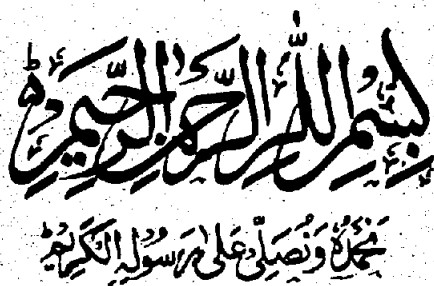 بِسْمِ اللّٰهِ الرَّحْمٰنِ الرَّحِيْمِ
نَحْمَدُهٗ وَنُصَلِّيْ عَلٰى رَسُوْلِهِ الْكَرِيْمِ